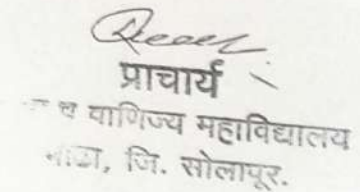 प्राचार्य
व वाणिज्य महाविद्यालय
जि. सोलापूर.